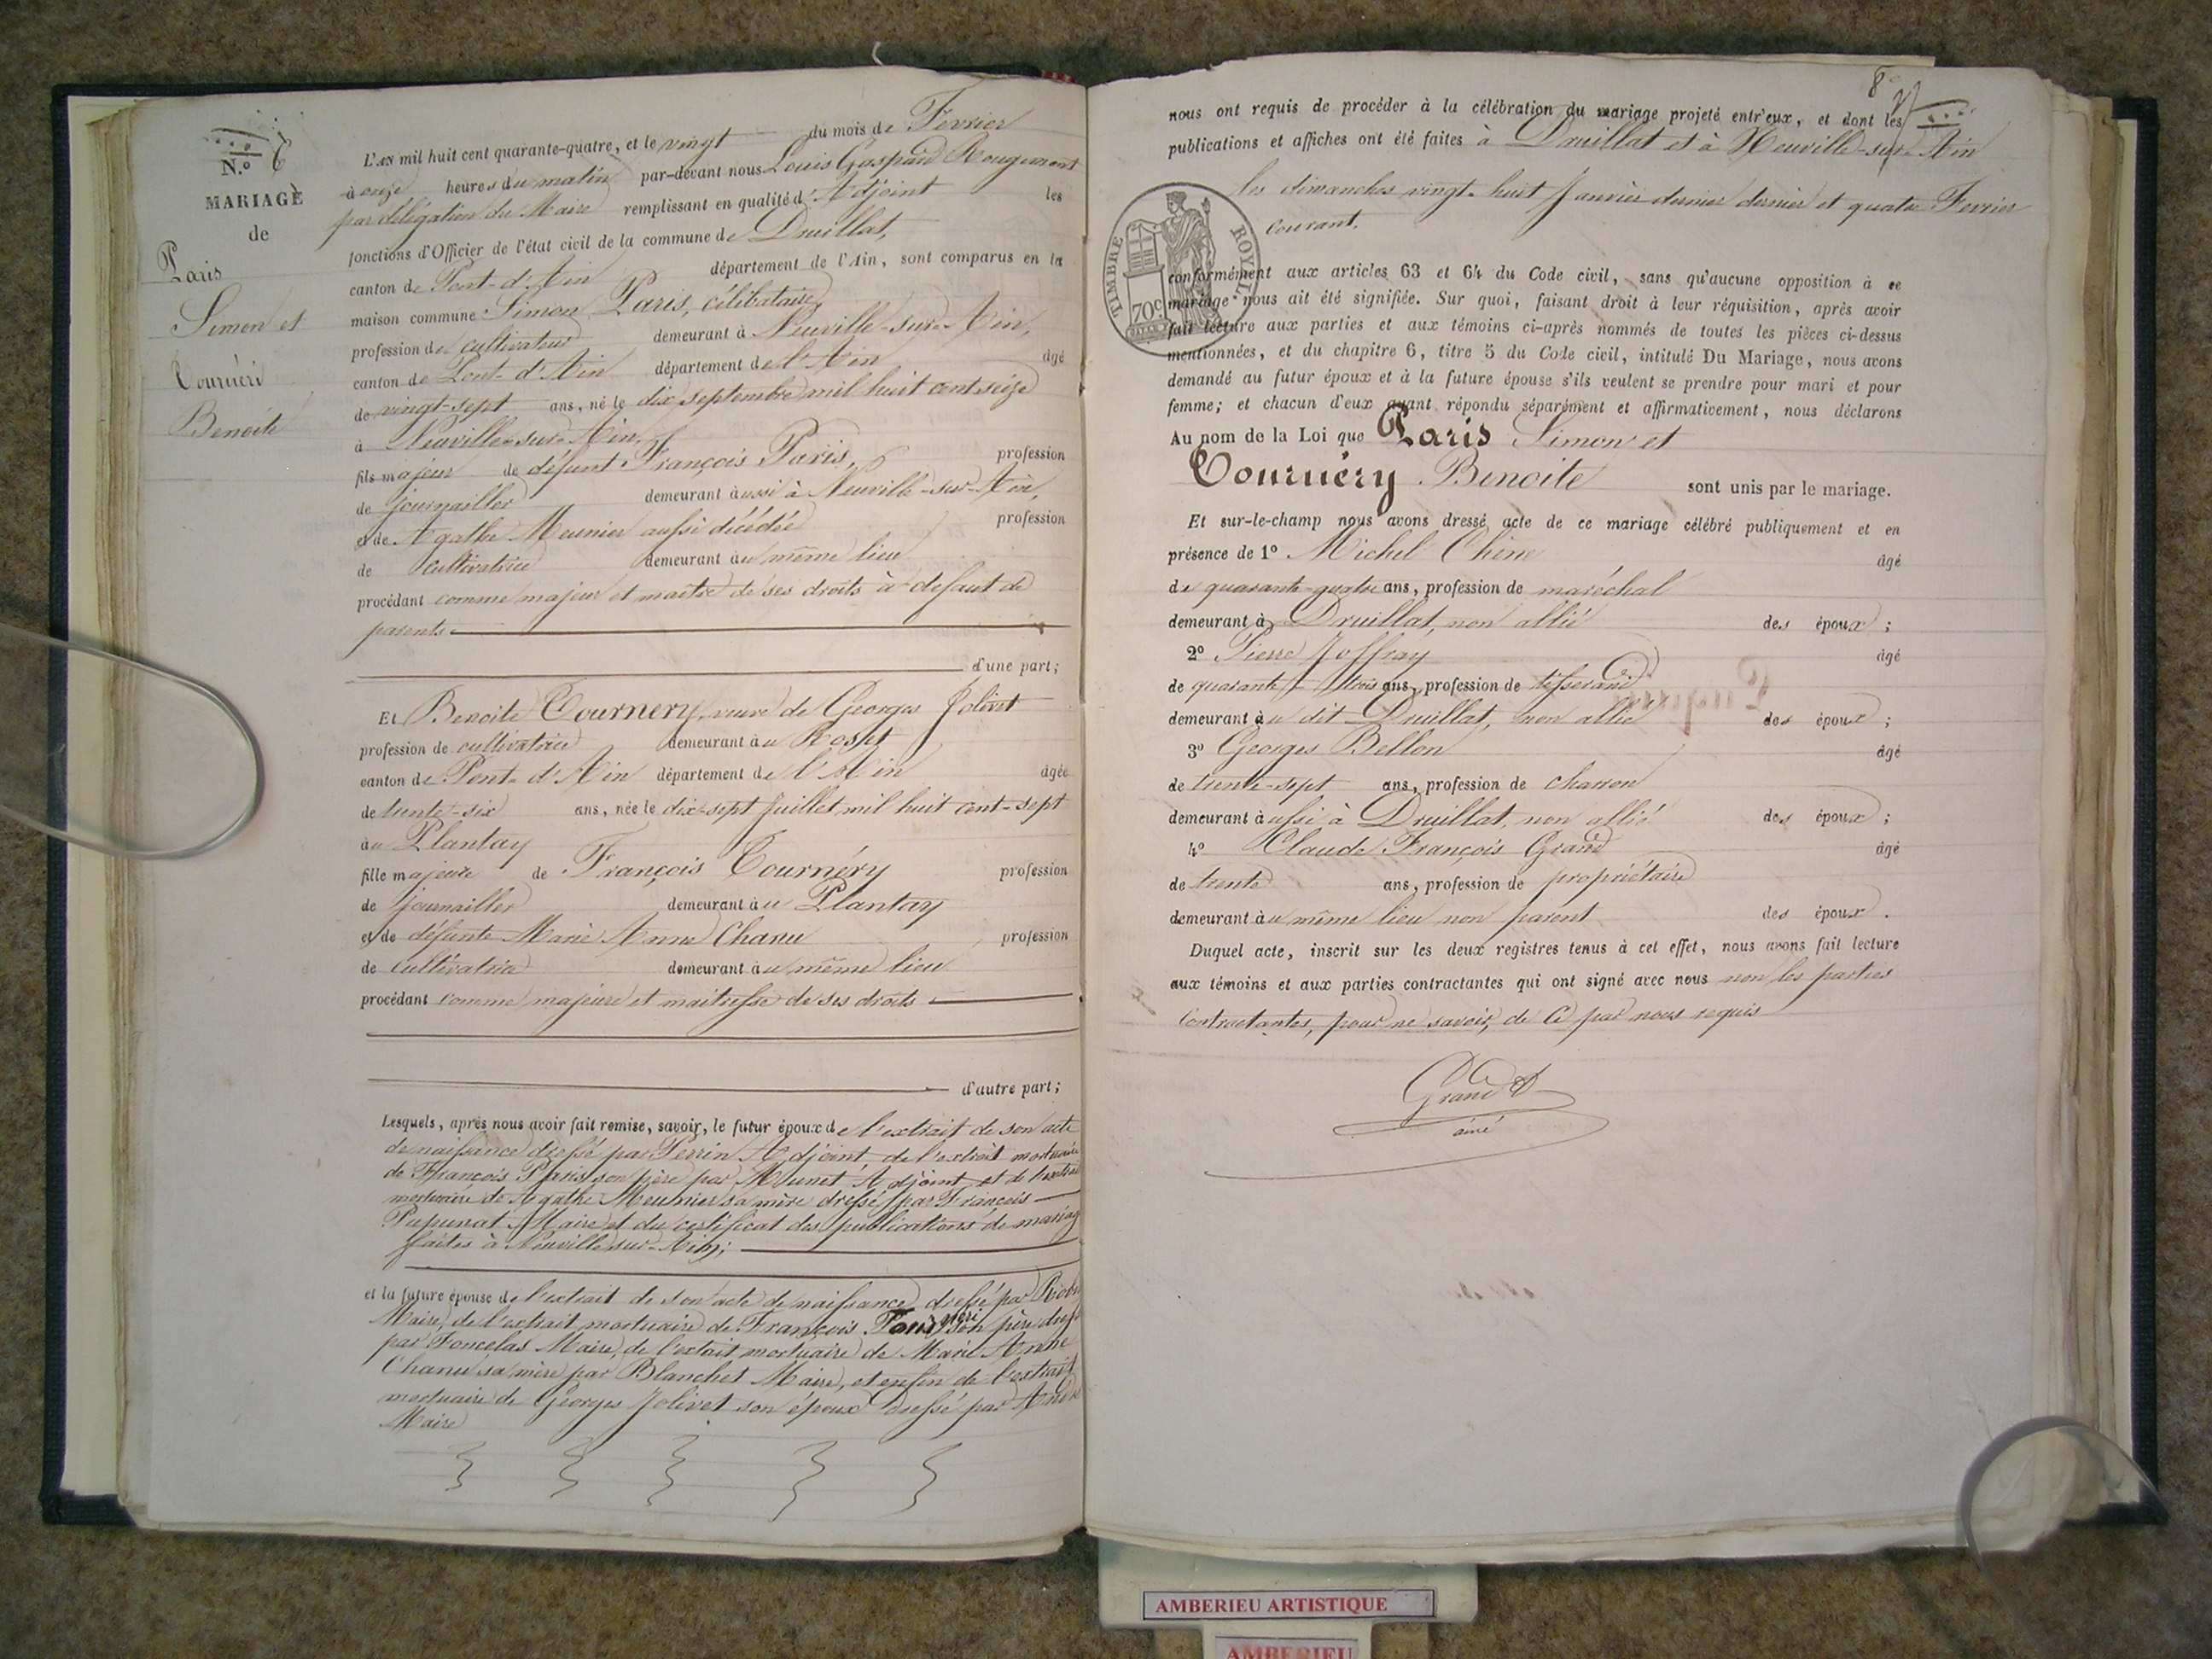 N.º 6
MARIAGE
de
Paris
Simon et
Tournéri
Benoite
L'AN mil huit cent quarante-quatre, et le vingt du mois de Fevrier
à onze heures du matin par-devant nous Louis Gaspard Rougemont
par délégation du Maire remplissant en qualité d'Adjoint les
fonctions d'Officier de l'état civil de la commune de Druillat,
canton de Pont-d'Ain département de l'Ain, sont comparus en la
maison commune Simon Paris, célibataire,
profession de cultivateur demeurant à Neuville-sur-Ain,
canton de Pont-d'Ain département de l'Ain âgé
de vingt-sept ans, né le dix septembre mil huit cent seize
à Neuville-sur-Ain,
fils majeur de défunt François Paris, profession
de journailler demeurant aussi à Neuville-sur-Ain,
et de Agathe Meunier aussi décédée profession
de cultivatrice demeurant au même lieu
procédant comme majeur et maître de ses droits à defaut de
parents
d'une part;
Et Benoite Tournery, veuve de Georges Jolivet
profession de cultivatrice demeurant au Rosset
canton de Pont-d'Ain département de l'Ain âgée
de trente-six ans, née le dix-sept Juillet mil huit cent-sept
au Plantay
fille majeure de François Tournéry profession
de journailler demeurant au Plantay
et de défunte Marie Anne Chanu profession
de cultivatrice demeurant au même lieu
procédant comme majeure et maitresse de ses droits
d'autre part;
Lesquels, après nous avoir fait remise, savoir, le futur époux de l'extrait de son acte
de naissance dressé par Perrin Adjoint, de l'extrait mortuaire
de François Paris son père par Munet Adjoint et de l'extrait
mortuaire de Agathe Meunier sa mère dressé par François
Pupunat Maire et du certificat des publications de mariage
faites à Neuville-sur-Ain;
et la future épouse de l'extrait de son acte de naissance dressé par
Maire, de l'extrait mortuaire de François Tournéri son père dressé
par Foncelas Maire, de l'extait mortuaire de Marie Anne
Chanu sa mère par Blanchet Maire, et enfin de l'extrait
mortuaire de Georges Jolivet son époux dressé par
Maire
8
nous ont requis de procéder à la célébration du mariage projeté entr'eux, et dont les
publications et affiches ont été faites à Druillat et à Neuville-sur-Ain
les dimanches vingt-huit Janvier dernier dernier et quatre Fevrier
courant.
TIMBRE ROYAL
70c
conformément aux articles 63 et 64 du Code civil, sans qu'aucune opposition à ce
mariage nous ait été signifiée. Sur quoi, faisant droit à leur réquisition, après avoir
fait lecture aux parties et aux témoins ci-après nommés de toutes les pièces ci-dessus
mentionnées, et du chapitre 6, titre 5 du Code civil, intitulé Du Mariage, nous avons
demandé au futur époux et à la future épouse s'ils veulent se prendre pour mari et pour
femme; et chacun d'eux ayant répondu séparément et affirmativement, nous déclarons
Au nom de la Loi que Paris Simon et
Tournéry Benoite sont unis par le mariage.
Et sur-le-champ nous avons dressé acte de ce mariage célébré publiquement et en
présence de 1º Michel Chêne âgé
de quarante-quatre ans, profession de maréchal
demeurant à Druillat, non allié des époux;
2º Pierre Joffray âgé
de quarante-trois ans, profession de tisserand
demeurant au dit Druillat, non allié des époux;
3º Georges Bellon âgé
de trente-sept ans, profession de charron
demeurant aussi à Druillat, non allié des époux;
4º Claude François Grand âgé
de trente ans, profession de propriétaire
demeurant au même lieu non parent des époux.
Duquel acte, inscrit sur les deux registres tenus à cet effet, nous avons fait lecture
aux témoins et aux parties contractantes qui ont signé avec nous non les parties
contractantes, pour ne savoir, de ce par nous requis
Grand
ainé
AMBERIEU ARTISTIQUE
AMBERIEU